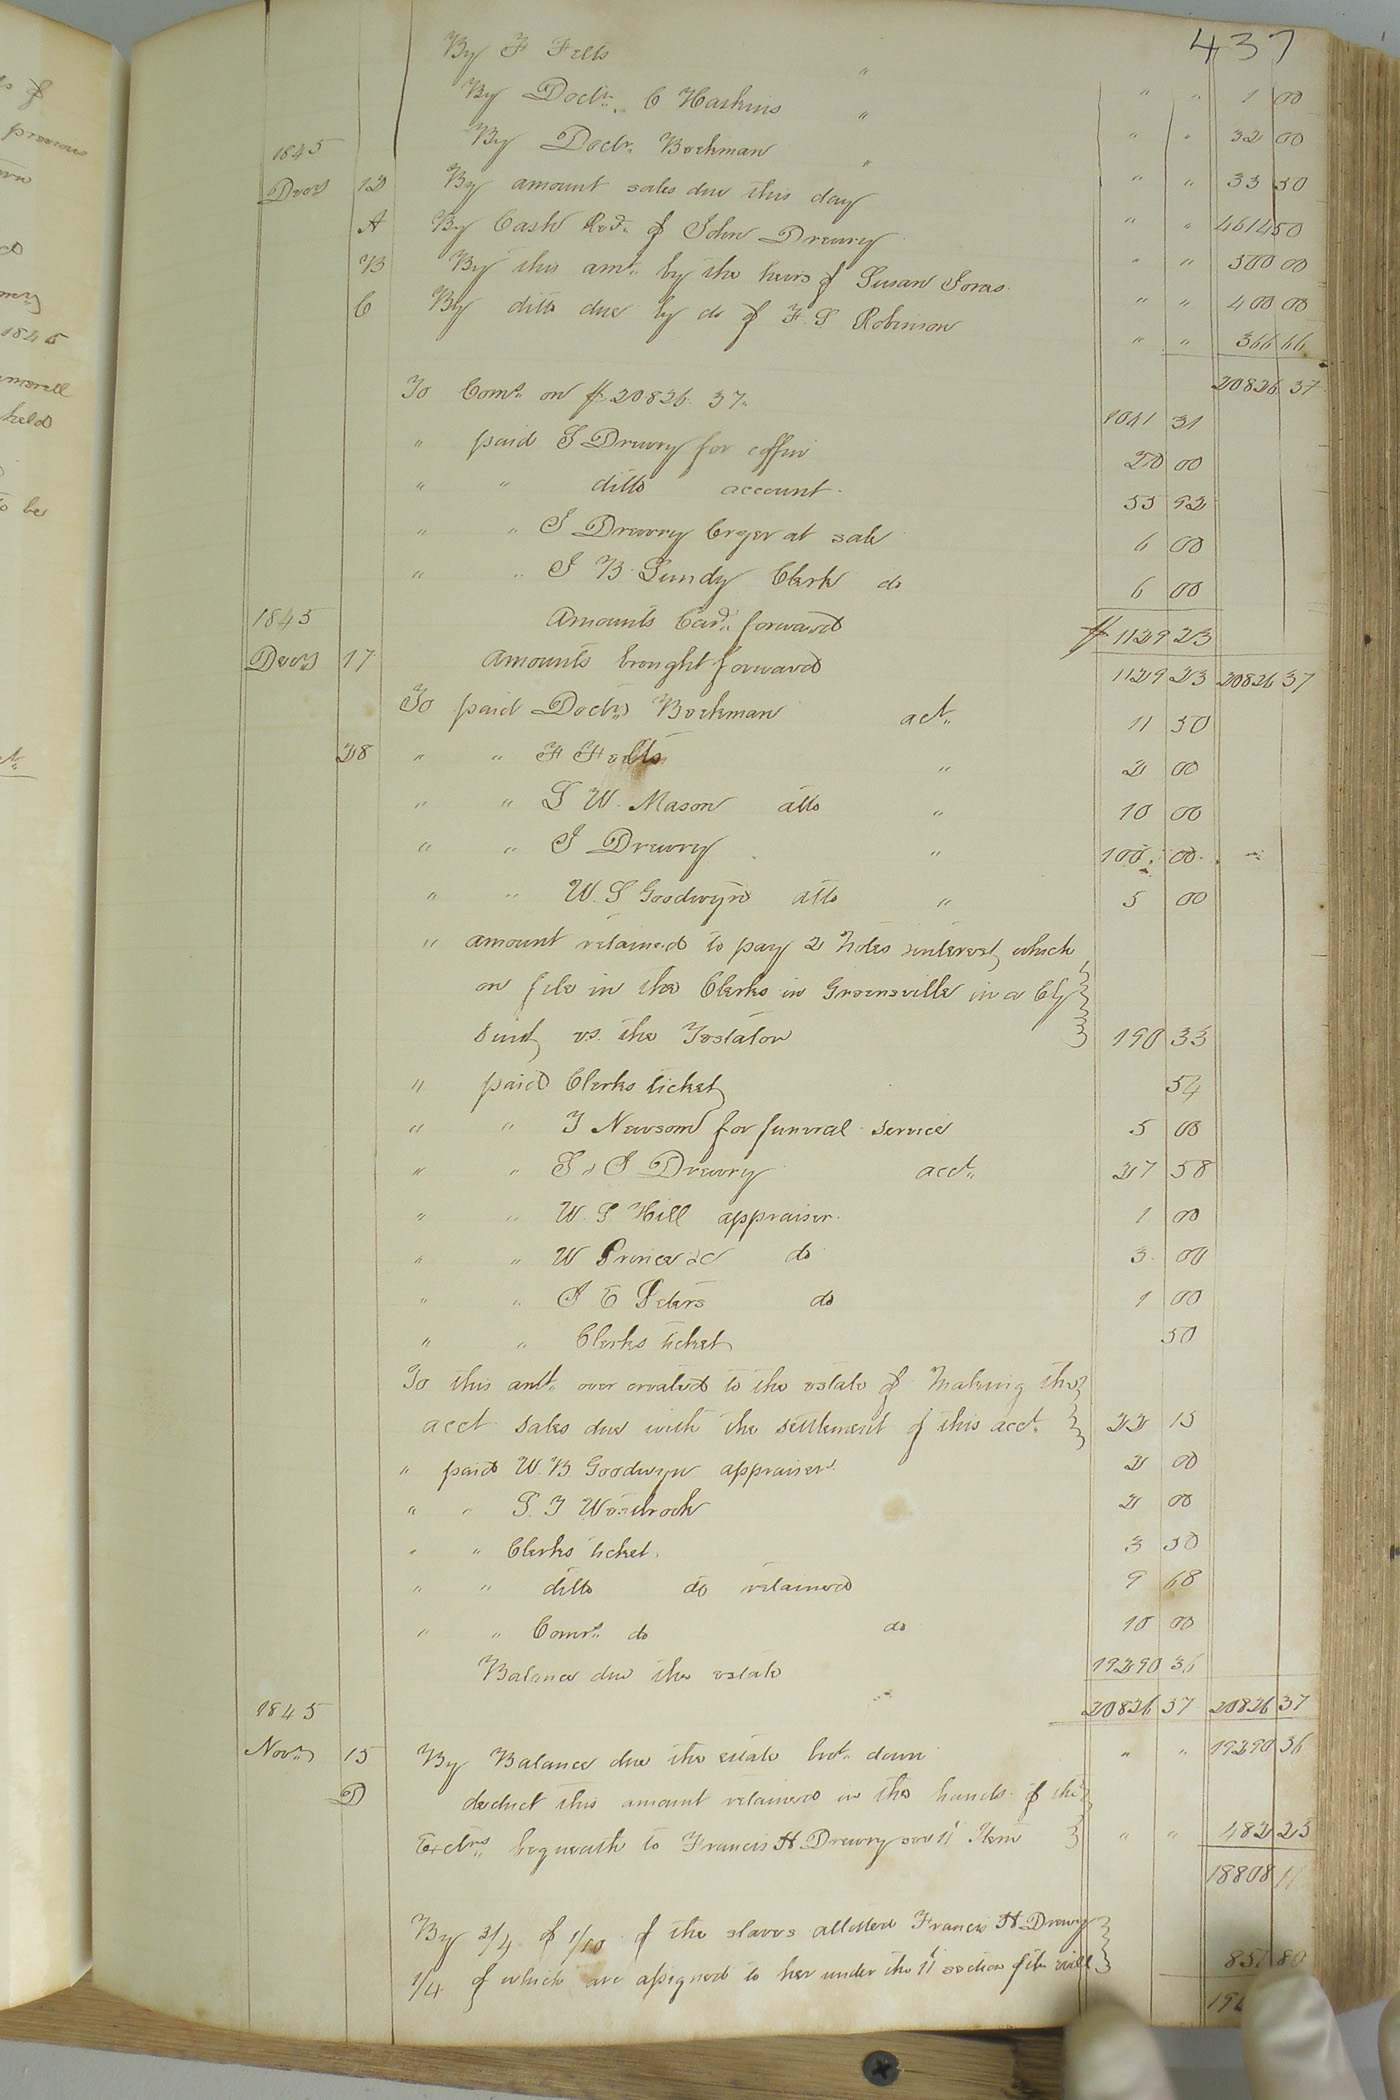 437
By F Felts " " " 1 00
By Doctr. C Haskins " " " 32 00
1845 By Doctr. Bockman " " " 33 50
Decr 12 By amount sales due this day " " 4614 50
A By Cash Recd. of John Drewry " " 500 00
B By this amt. by the heirs of Susan " " 400 00
C By ditto due by do of F. S Robinson " " 366 66
20826 37
To Coms. on $20826. 37. 1041 31
" paid S Drewry for coffin 20 00
" " ditto account. 55 92
" " J Drewry Cryer at sale 6 00
" " J B Lundy Clerk do 6 00
1845 Amounts Card. forward $1129 23
Decr 17 Amounts brought forward 1129 23 20826 37
To paid Doctr Bockman act. 11 50
28 " " F Felts " 2 00
" " L W. Mason atto " 10 00
" " J Drewry " 100. 00.
" " W. S Goodwyn atto " 5 00
" amount retained to pay 2 Notes interest, which
on file in the Clerks in Greensville in a Chy
suit, vs. the Testator 190 33
" paid Clerks ticket 54
" " T Newsom for funeral service 5 00
" " S & J Drewry acct. 27 58
" " W. S Hill appraiser. 1 00
" " W Prince do 3. 00
" " J E Peters do 1 00
" " Clerks ticket 50
To this amt. over credited to the estate of Making the
acct sales due with the settlement of this acct. 22 15
" paid W. B Goodwyn appraiser. 2 00
" " S. T Westbrook 2 00
" " Clerks ticket. 3 50
" " ditto do retained 9 68
" " Comrs. do do 10 00
Balance due the estate 19290 36
1845 20826 37 20826 37
Novr 15 By Balance due the estate brot. down " " 19290 36
D deduct this amount retained in the hands of the
Exctrs. bequeath to Francis H Drewry see 11 Item " " 482 25
18808 11
By 3/4 of 1/10 of the slaves allotted Francis H. Drewry
1/4 of which are assigned to her under the 11 section of the will 851 80